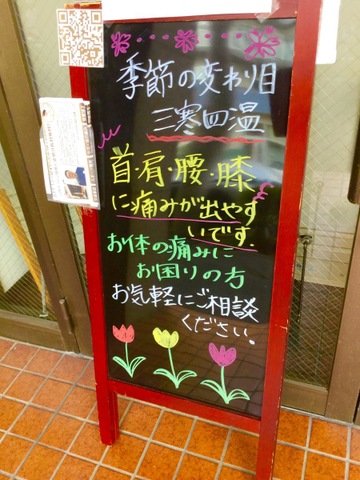 季節の変わり目
三寒四温
首・肩・腰・膝
に痛みが出やす
いです.
お体の痛みに
お困りの方
お気軽にご相談
ください。